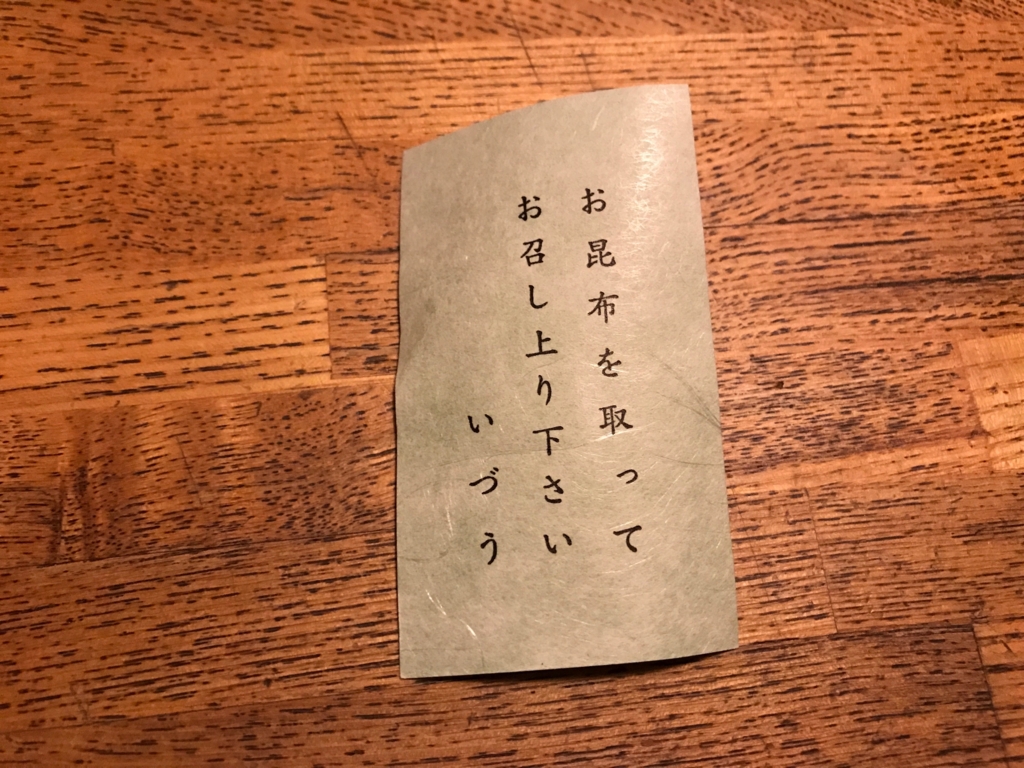 お昆布を取って
お召し上り下さい
いづう